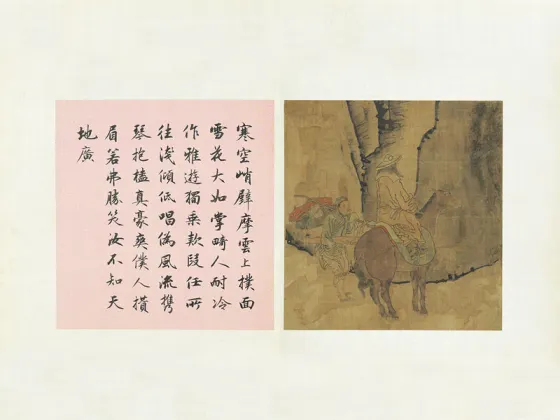 寒空峭壁摩雲上撲面
雪花大如掌畸人耐冷
作雅遊獨乘款段任所
往淺傾低唱偽風流携
琴抱榼真豪爽僕人攢
眉若弗勝笑汝不知天
地廣